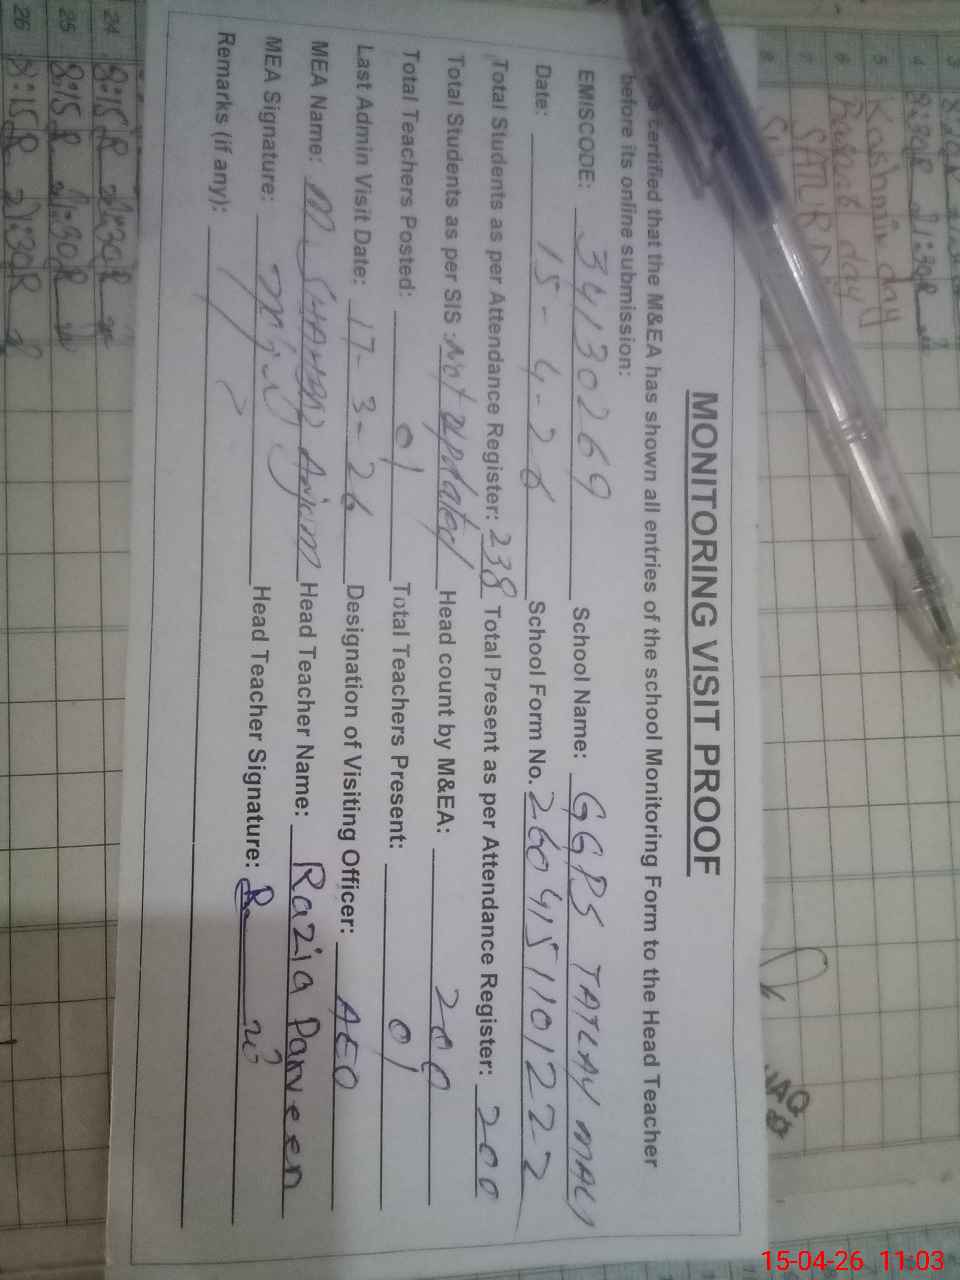 MONITORING VISIT PROOF
certified that the M&EA has shown all entries of the school Monitoring Form to the Head Teacher
before its online submission:
EMISCODE: 34130269 School Name: GGPS TATLAY MALI
Date: 15-4-26 School Form No. 2604151101222
Total Students as per Attendance Register: 238 Total Present as per Attendance Register: 200
Total Students as per SIS: Not updated Head count by M&EA: 200
Total Teachers Posted: 01 Total Teachers Present: 01
Last Admin Visit Date: 17-3-26 Designation of Visiting Officer: AEO
MEA Name: M. Anjum Head Teacher Name: Razia Parveen
MEA Signature: Head Teacher Signature:
Remarks (if any):
3
4 8:30R 21:30R
5 Kashmir day
6
7
8
24 8:15R 21:30R
25 8:15R 21:30R
26 8:15R 21:30R
15-04-26 11:03